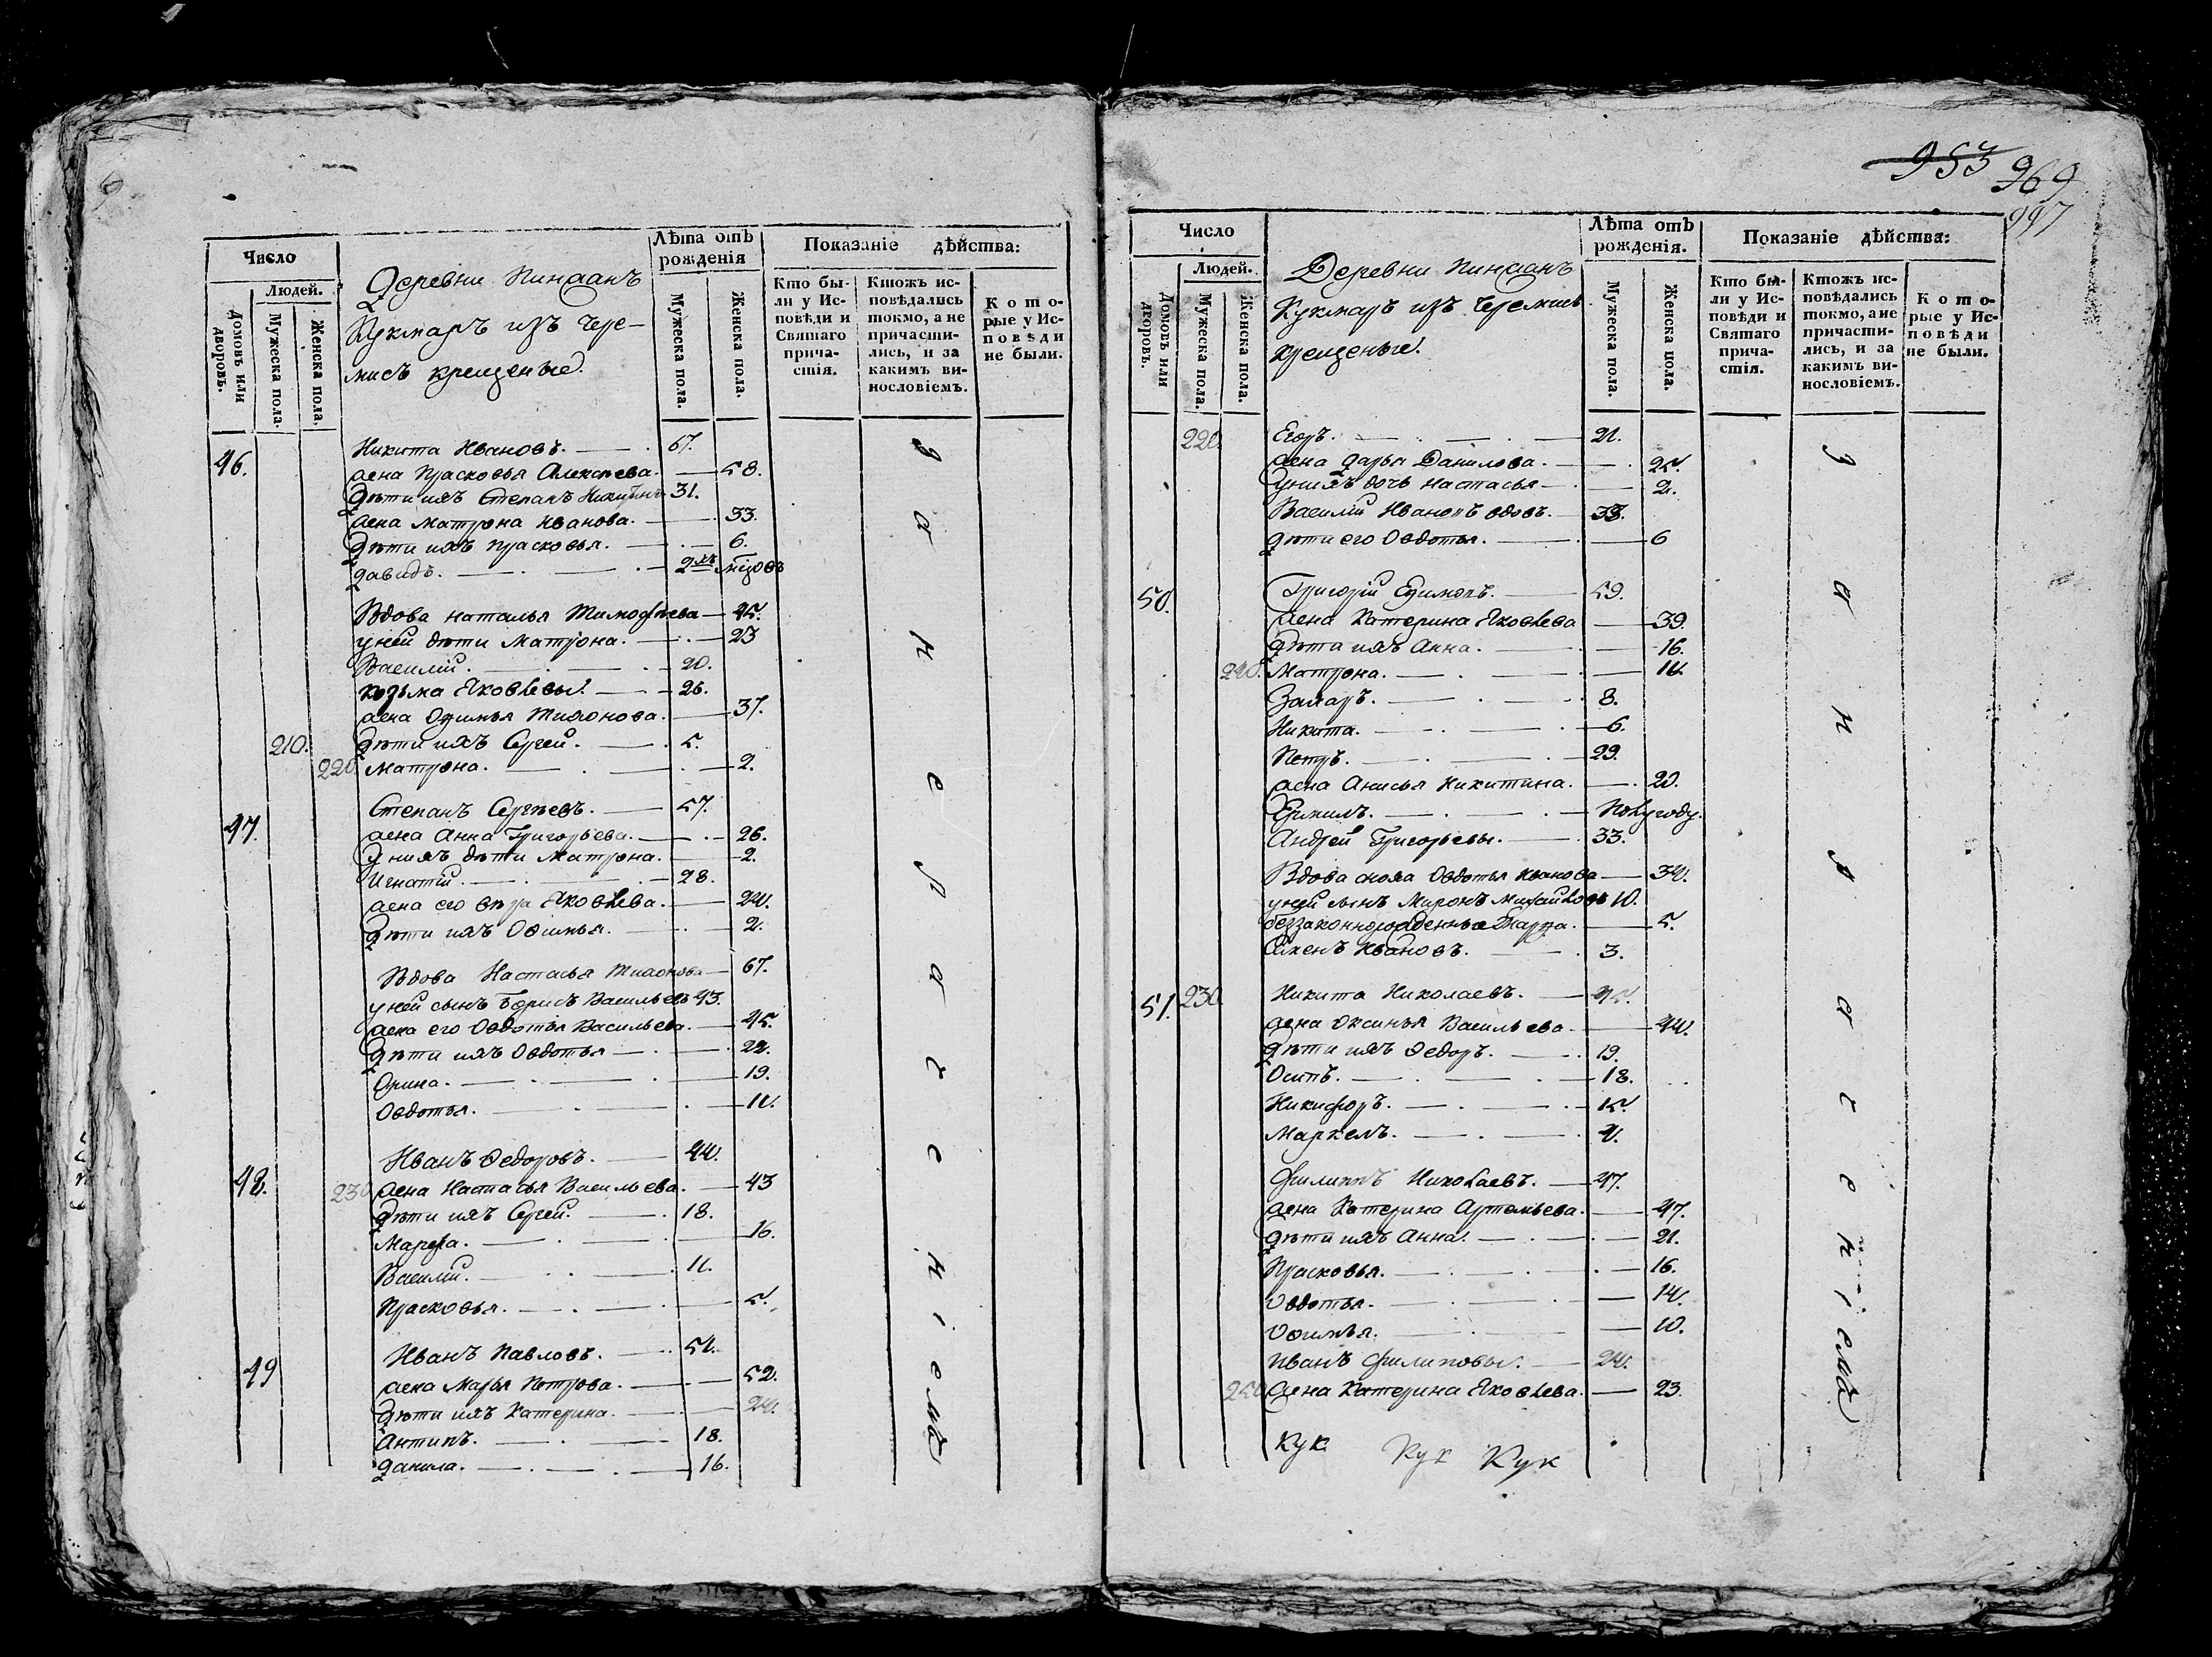 953 969
997
Число
Людей.
Домовъ или дворовъ.
Мужеска пола.
Женска пола.
Деревни Пинжанъ
Кукмаръ изъ чере-
мисъ крещеные.
Лѣта отъ рожденія
Мужеска пола.
Женска пола.
Показаніе дѣйства:
Кто бы-
ли у Ис-
повѣди и
Святаго
прича-
стія.
Ктожъ ис-
повѣдались
токмо, а не
причасти-
лись, и за
какимъ ви-
нословіемъ.
Кото-
рые у Ис-
повѣди
не были.
46. Никита Ивановъ. 67.
жена Прасковья Алексѣева. 58.
Дѣти ихъ Степанъ Никитинъ 31.
жена Матрона Иванова. 33.
Дѣти ихъ Прасковья. 6.
Давидъ. 2хъ
Вдова Наталья Тимофѣева 45.
у ней дѣти Матрона. 23
Василій. 20.
Козьма Яковлевы. 26.
жена Офимья Тихонова. 37.
210. Дѣти ихъ Сергей. 5.
220 Матрона. 2.
47. Степанъ Сергѣевъ. 57.
жена Анна Григорьева. 26.
У нихъ дѣти Матрона. 2.
Игнатій. 28.
жена его Яковлева. 24.
Дѣти ихъ Офимья. 2.
Вдова Настасья Тихонова 67.
у ней сынъ Борисъ Васильевъ 43.
жена его Овдотья Васильева. 45.
Дѣти ихъ Овдотья 22.
Орина. 19.
Овдотья. 11.
48. Иванъ Ѳедоровъ. 44.
230 жена Настасья Васильева. 43
Дѣти ихъ Сергей. 18.
Марфа. 16.
Василій. 11.
Прасковья. 5.
49 Иванъ Павловъ. 51.
жена Марья Петрова. 52.
Дѣти ихъ Катерина. 24.
Антипъ. 18.
Данила. 16.
за нерасченіемъ
Число
Людей.
Домовъ или дворовъ.
Мужеска пола.
Женска пола.
Деревни Пинжанъ
Кукмаръ изъ черемисъ
крещеные.
Лѣта отъ рожденія.
Мужеска пола.
Женска пола.
Показаніе дѣйства:
Кто бы-
ли у Ис-
повѣди и
Святаго
прича-
стія.
Ктожъ ис-
повѣдались
токмо, а не
причасти-
лись, и за
какимъ ви-
нословіемъ.
Кото-
рые у Ис-
повѣди
не были.
220. Егоръ. 21.
жена Дарья Данилова. 25.
у нихъ дочь Настасья 2.
Василій Ивановъ вдовъ. 33.
Дѣти его Овдотья. 6
50. Григорій Ефимовъ. 59.
жена Катерина Яковлева 39.
Дѣти ихъ Анна. 16.
240. Матрона. 11.
Захаръ. 8.
Никита. 6.
Петръ. 29.
жена Анисья Никитина. 20.
Ермилъ. Полугоду.
Андрей Григорьевы. 33.
Вдова сноха Овдотья Иванова 34.
у ней сынъ Миронъ Михайловъ 10.
беззаконнорожденные Марфа. 5.
Семенъ Ивановъ. 3.
51. 230. Никита Николаевъ. 45.
жена Оксинья Васильева. 44.
Дѣти ихъ Ѳедоръ. 19.
Осипъ. 18.
Никифоръ. 15.
Маркелъ. 4.
Филиппъ Николаевъ. 47.
жена Катерина Артемьева. 47.
Дѣти ихъ Анна. 21.
Прасковья. 16.
Овдотья. 14.
Офимья. 10.
Иванъ Филиповы. 24.
250 жена Катерина Яковлева. 23.
за нерасченіемъ
Кук Кук Кук